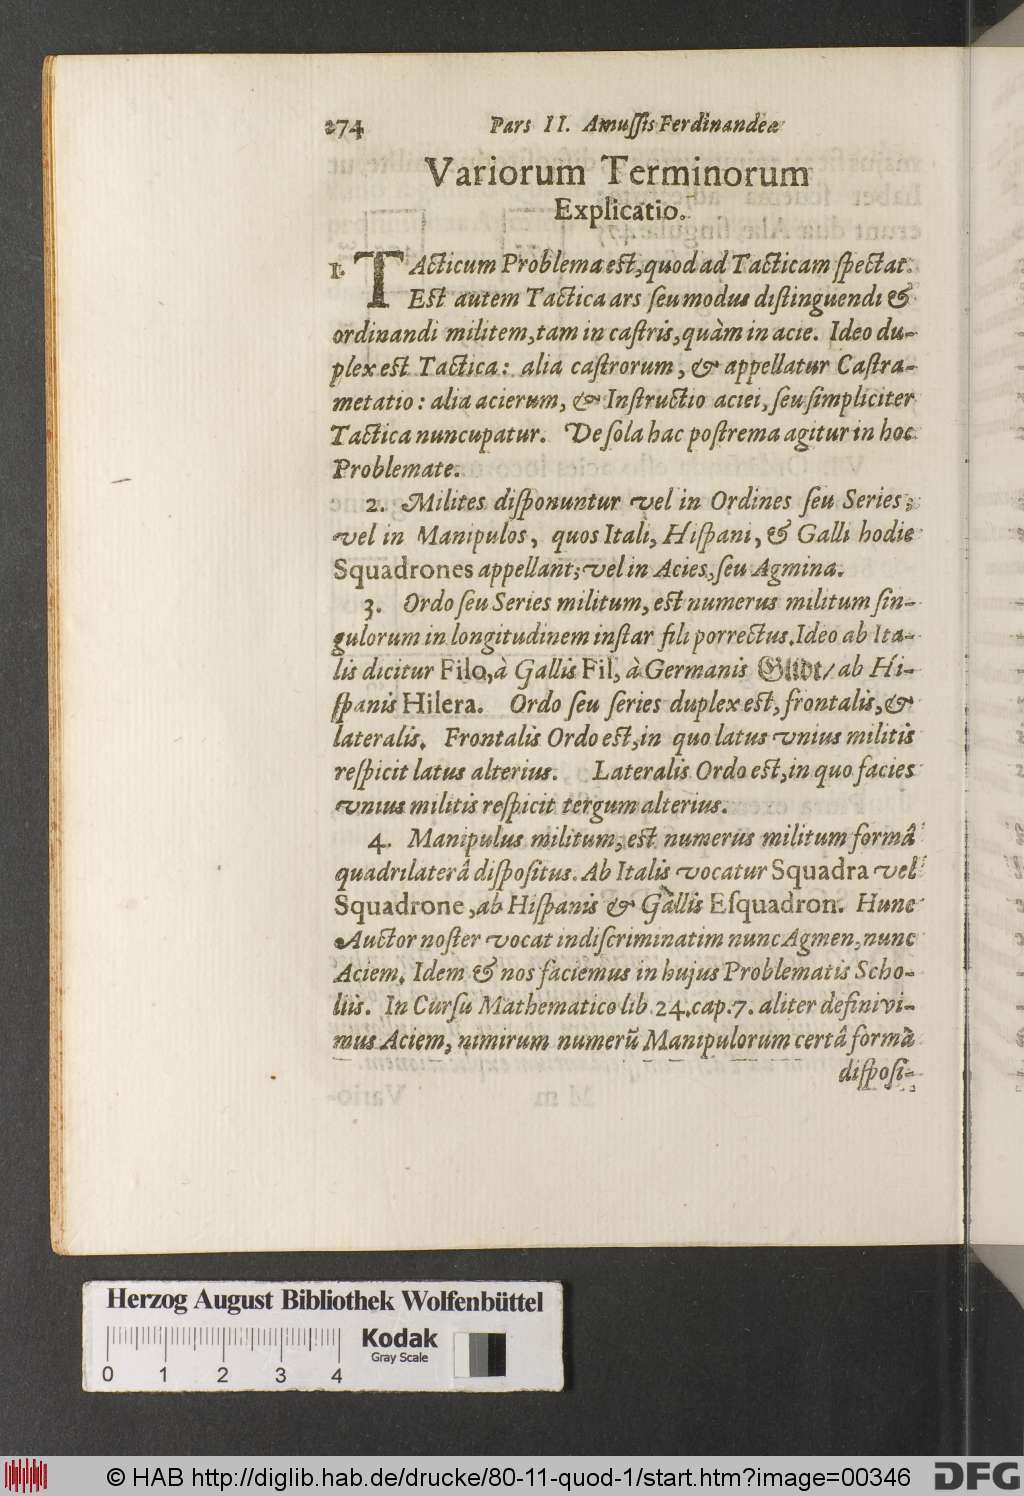 274 Pars II. Amuſſis Ferdinandeæ
Variorum Terminorum
Explicatio.
1. TActicum Problema est, quod ad Tacticam ſpectat.
Est autem Tactica ars ſeu modus diſtinguendi &
ordinandi militem, tam in caſtris, quàm in acie. Ideo du-
plex est Tactica: alia caſtrorum, & appellatur Caſtra-
metatio: alia acierum, & Inſtructio aciei, ſeu ſimpliciter
Tactica nuncupatur. De ſola hac poſtrema agitur in hoc
Problemate.
2. Milites diſponuntur vel in Ordines ſeu Series;
vel in Manipulos, quos Itali, Hiſpani, & Galli hodie
Squadrones appellant; vel in Acies, ſeu Agmina.
3. Ordo ſeu Series militum, est numerus militum ſin-
gulorum in longitudinem inſtar fili porrectus. Ideo ab Ita-
lis dicitur Filo, à Gallis Fil, à Germanis Glidt/ ab Hi-
ſpanis Hilera. Ordo ſeu ſeries duplex est, frontalis, &
lateralis. Frontalis Ordo est, in quo latus vnius militis
reſpicit latus alterius. Lateralis Ordo est, in quo facies
vnius militis reſpicit tergum alterius.
4. Manipulus militum, est numerus militum formâ
quadrilaterâ diſpoſitus. Ab Italis vocatur Squadra vel
Squadrone, ab Hiſpanis & Gàllis Eſquadron. Hunc
Auctor noſter vocat indiſcriminatim nunc Agmen, nunc
Aciem. Idem & nos faciemus in hujus Problematis Scho-
liis. In Curſu Mathematico lib. 24. cap. 7. aliter definivi-
mus Aciem, nimirum numerũ Manipulorum certâ formâ
diſpoſi-
Herzog August Bibliothek Wolfenbüttel
0 1 2 3 4
Kodak
Gray Scale
© HAB http://diglib.hab.de/drucke/80-11-quod-1/start.htm?image=00346 DFG